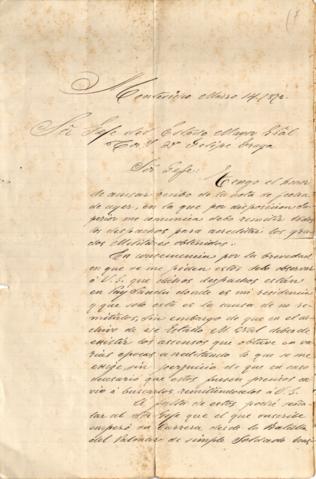 Montevideo Marzo 14/872.
Sôr Gefe del Estado Mayor Gral
Cor.l Dn Felipe Fraga
Sôr Gefe: Tengo el honor
de acusar recibo de la nota de fecha
de ayer, en la que por disposicion Su-
perior me comunica debo remitir todos
los despachos para acreditar los gra-
dos Militares obtenidos.
En consecuencia por la brevedad
en que se me piden estos debo observar
á V.S. que dichos despachos estan
en Paysandú donde es mi residencia
y que solo esta es la causa de no re-
mitirlos, sin embargo de que en el ar-
chivo de ese Estado M. Gral debe de
existir los ascensos que obtuve en va-
rias epocas acreditando lo que se me
exije sin perjuicio de que en caso
necesario que estos fuesen precisos en-
vio á buscarlos remitiendoselos á V.S.
A falta de estos podré seña-
lar al Sôr Gefe que el que suscribe
empezó su Carrera desde la Batalla
del Palmar de simple Soldado